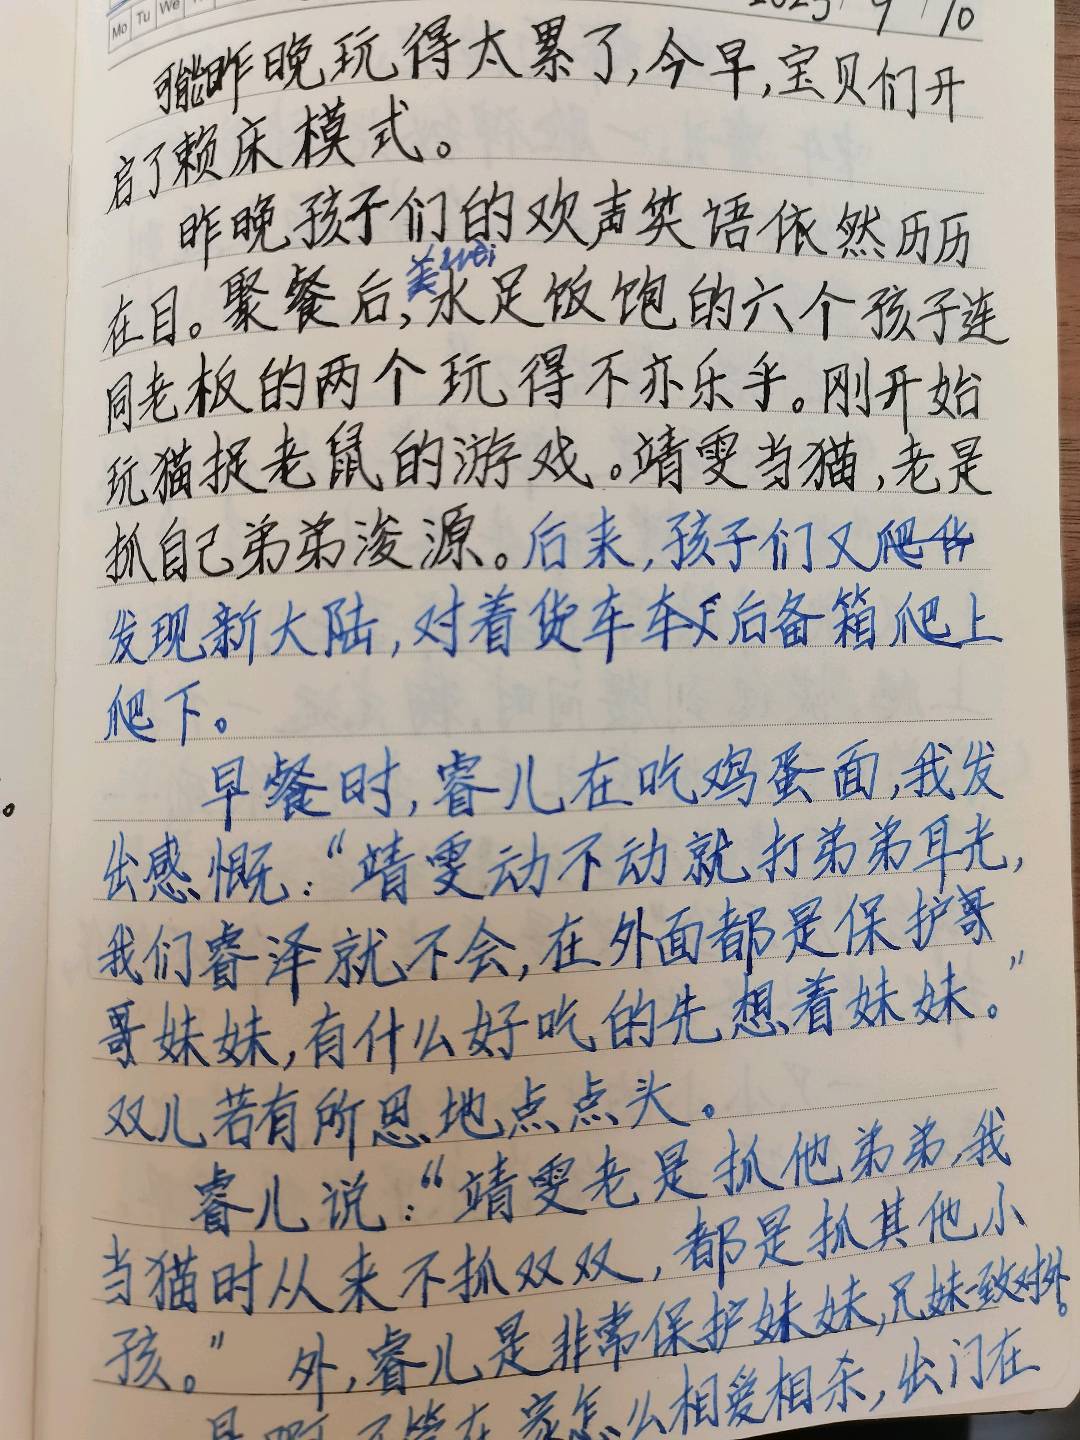 Mo Tu We
2023 9 10
可能昨晚玩得太累了,今早,宝贝们开
启了赖床模式。
昨晚孩子们的欢声笑语依然历历
在目。聚餐后,水足饭饱的六个孩子连
同老板的两个玩得不亦乐乎。刚开始
玩猫捉老鼠的游戏。靖雯当猫,老是
抓自己弟弟浚源。后来,孩子们又爬
发现新大陆,对着货车车后备箱爬上
爬下。
早餐时,睿儿在吃鸡蛋面,我发
出感慨:“靖雯动不动就打弟弟耳光,
我们睿泽就不会,在外面都是保护哥
哥妹妹,有什么好吃的先想着妹妹。”
双儿若有所思地点点头。
睿儿说:“靖雯老是抓他弟弟,我
当猫时从来不抓双双,都是抓其他小
孩。” 外,睿儿是非常保护妹妹,兄妹一致对外。
是啊,不管在家怎么相爱相杀,出门在